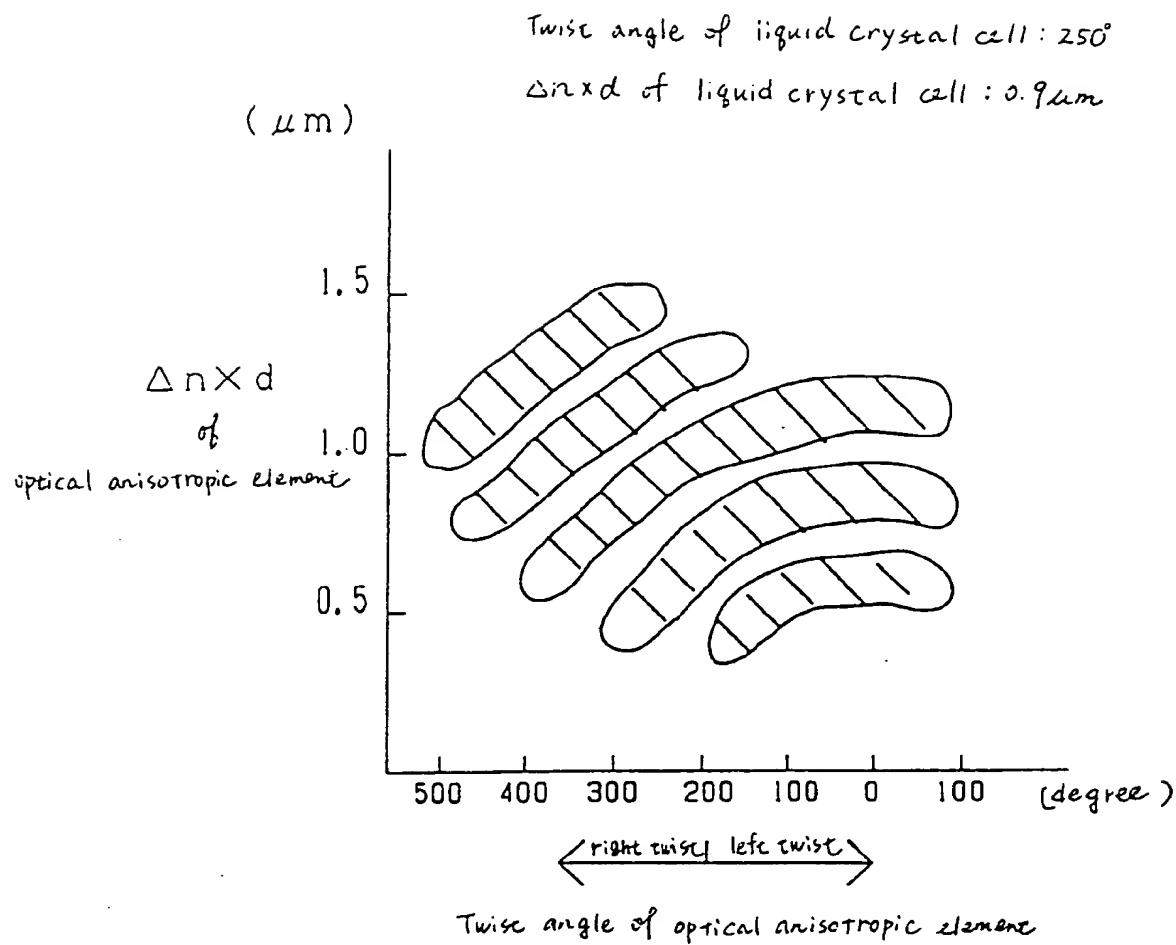 Twist angle of liquid crystal cell : 250°
Δn×d of liquid crystal cell : 0.9μm
(μm)
1.5
Δn×d
of
optical anisotropic element
1.0
0.5
500 400 300 200 100 0 100 (degree)
right twist| left twist
Twist angle of optical anisotropic element